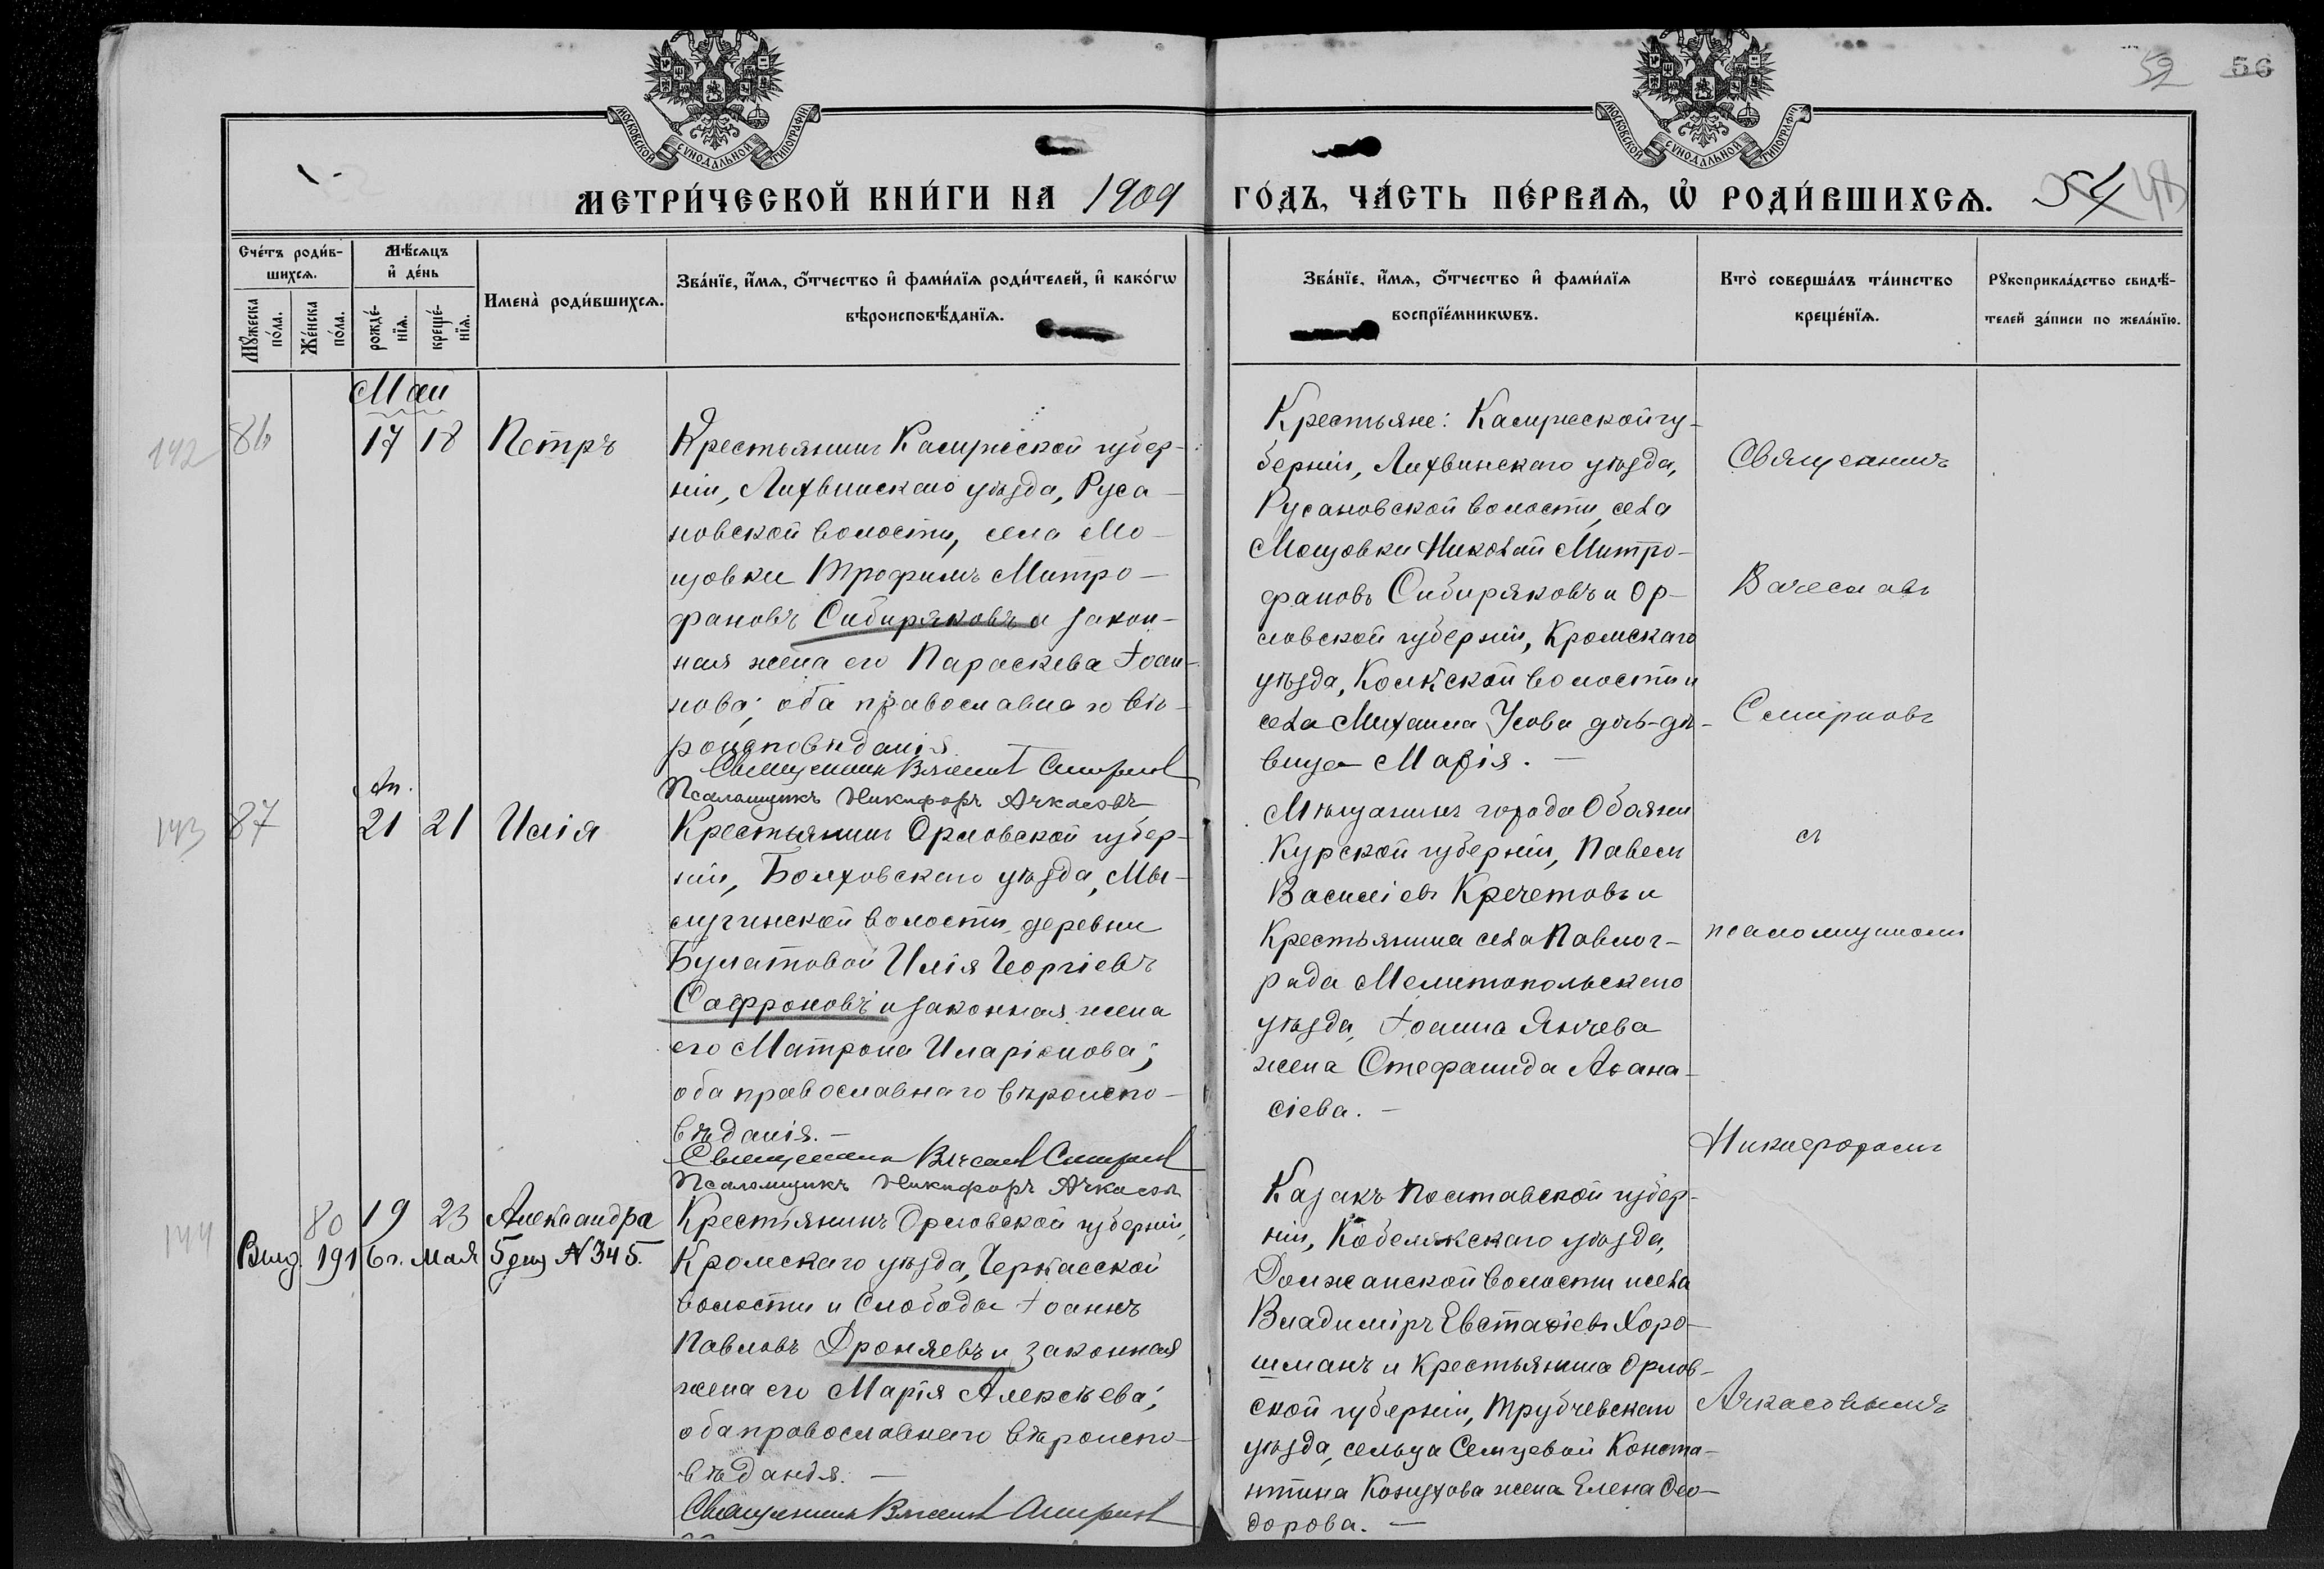 МОСКОВСКОЙ СУНОДАЛЬНОЙ ТИПОГРАФІИ
МОСКОВСКОЙ СУНОДАЛЬНОЙ ТИПОГРАФІИ
59 56
МЕТРИ́ЧЕСКОЙ КНИ́ГИ НА 1909
ГО́ДЪ, ЧА́СТЬ ПЕ́РВАѦ, Ѡ҆ РОДИ́ВШИХСѦ. 54
Сче́тъ роди́в-
шихсѧ.
Мꙋ́жеска
по́ла.
Же́нска
по́ла.
Мѣ́сѧцъ
и҆ де́нь
рожде́-
нїѧ.
креще́-
нїѧ.
Имена̀ роди́вшихсѧ.
Зва́нїе, и҆́мѧ, ѻ҆́тчество и҆ фами́лїѧ роди́телей, и҆ како́гѡ
вѣроисповѣ́данїѧ.
Зва́нїе, и҆́мѧ, ѻ҆́тчество и҆ фами́лїѧ
воспрїе́мникѡвъ.
Кто̀ соверша́лъ та́инство
креще́нїѧ.
Рꙋкоприкла́дство свидѣ́-
телей за́писи по жела́нїю.
Май
142 86 17 18 Петръ
Крестьянинъ Калужской губер-
ніи, Лихвинскаго уѣзда, Руса-
новской волости, села Мо-
щовки Трофимъ Митро-
фановъ Сибиряковъ и закон-
ная жена его Параскева Іоан-
нова; оба православнаго вѣ-
роисповѣданія.
Священникъ Вячеслав Смирнов
Псаломщикъ Никифоръ Ачкасовъ
Крестьяне: Калужской гу-
берніи, Лихвинскаго уѣзда,
Русановской волости, села
Мощовки Николай Митро-
фановъ Сибиряковъ и Ор-
ловской губерніи, Кромскаго
уѣзда, волости и
села Михаила Усова дѣв-
вица Марія. —
Священникъ
Вячеславъ
Смирновъ
съ
псаломщикомъ
Никифоромъ
Ачкасовымъ
143 87 21 21 Илія
Крестьянинъ Орловской губер-
ніи, Болховскаго уѣзда, Мы-
волости, деревни
Булатовой Илія Георгіевъ
Сафроновъ и законная жена
его Матрона Иларіонова;
оба православнаго вѣроиспо-
вѣданія. —
Священникъ Вячеслав Смирнов
Псаломщикъ Никифоръ Ачкасовъ
Мѣщанинъ города Обояни
Курской губерніи, Павелъ
Василіевъ Кречетовъ и
Крестьянина села Павлог-
рада Мелитопольскаго
уѣзда, Іоанна Янчева
жена Стефанида Аѳана-
сіева. —
144 80 19 23 Александра
Выд. 1916 г. мая 5 дня № 345.
Крестьянинъ Орловской губерніи,
Кромскаго уѣзда, Черкасской
волости и слободы Іоаннъ
Павловъ Дроняевъ и законная
жена его Марія Алексѣева;
оба православнаго вѣроиспо-
вѣданія. —
Священникъ Вячеслав Смирнов
Казакъ Полтавской губер-
ніи, Кобелякскаго уѣзда,
Должанской волости и села
Владиміръ Евстаѳіевъ Хоро-
шманъ и крестьянина Орлов-
ской губерніи, Трубчевскаго
уѣзда, сельца Семцевой Конста-
нтина Кожухова жена Елена Ѳео-
дорова. —